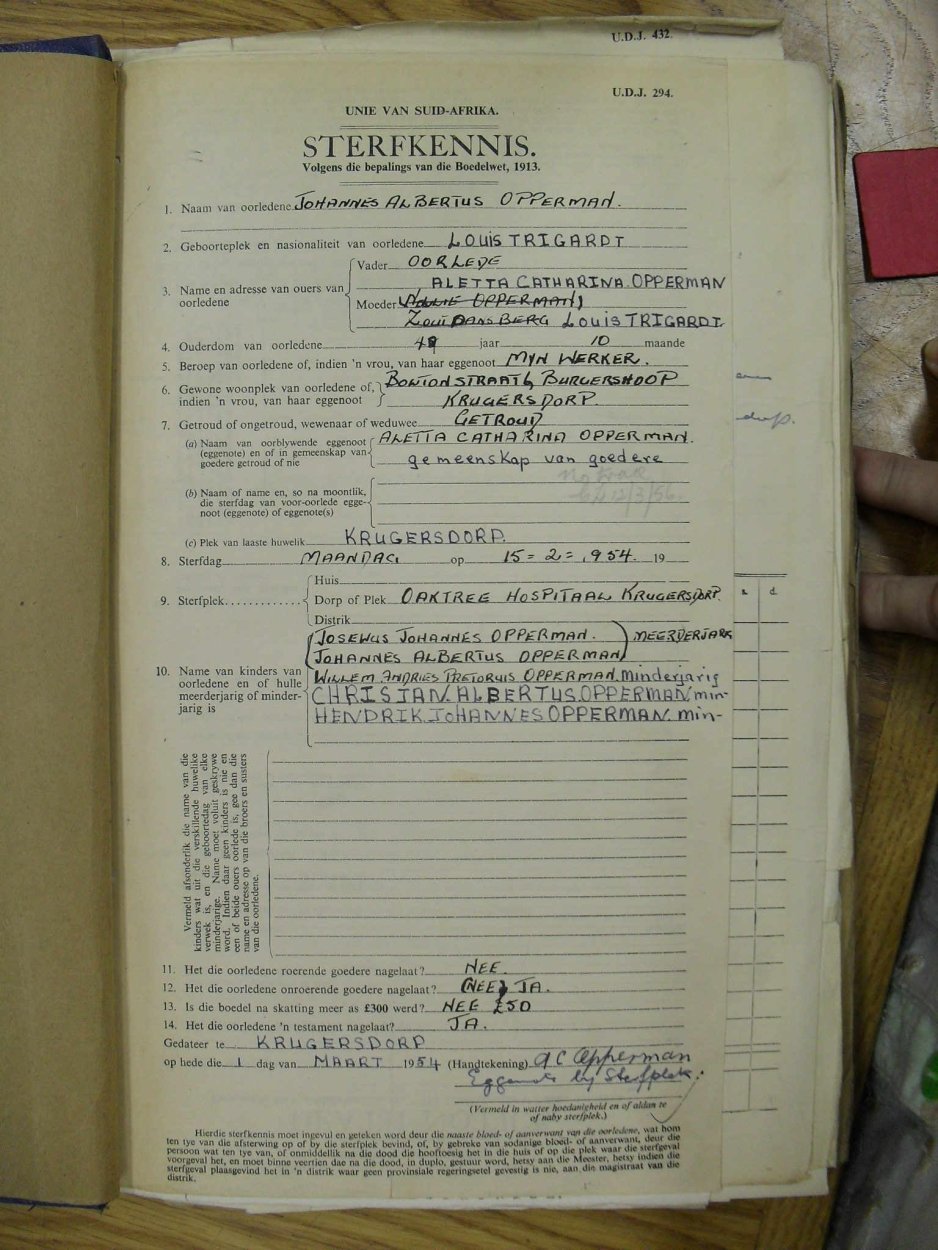 U.D.J. 432.
U.D.J. 294.
UNIE VAN SUID-AFRIKA.
STERFKENNIS.
Volgens die bepalings van die Boedelwet, 1913.
1. Naam van oorledene JOHANNES ALBERTUS OPPERMAN.
2. Geboorteplek en nasionaliteit van oorledene LOUIS TRIGARDT
3. Name en adresse van ouers van oorledene
Vader OORLEDE
ALETTA CATHARINA OPPERMAN
Moeder OPPERMAN
ZOUTPANSBERG LOUIS TRIGARDT
4. Ouderdom van oorledene 49 jaar 10 maande
5. Beroep van oorledene of, indien 'n vrou, van haar eggenoot MYN WERKER.
6. Gewone woonplek van oorledene of, indien 'n vrou, van haar eggenoot
BONTONSTRAAT 4 BURGERSHOOP
KRUGERSDORP.
7. Getroud of ongetroud, wewenaar of weduwee GETROUD
(a) Naam van oorblywende eggenoot (eggenote) en of in gemeenskap van goedere getroud of nie
ALETTA CATHARINA OPPERMAN.
gemeenskap van goedere
12/3/56
(b) Naam of name en, so na moontlik, die sterfdag van voor-oorlede eggenoot (eggenote) of eggenote(s)
(c) Plek van laaste huwelik KRUGERSDORP.
8. Sterfdag MAANDAG op 15=2=1954. 19
9. Sterfplek
Huis
Dorp of Plek OAKTREE HOSPITAAL KRUGERSDORP.
Distrik
10. Name van kinders van oorledene en of hulle meerderjarig of minderjarig is
JOSEWUS JOHANNES OPPERMAN.
JOHANNES ALBERTUS OPPERMAN
MEERDERJARK
WILLEM ANDRIES PRETORUIS OPPERMAN. Minderjarig
CHRISTAN ALBERTUS OPPERMAN. min-
HENDRIK JOHANNES OPPERMAN. min-
Vermeld afsonderlik die name van die
kinders wat uit die verskillende huwelike
verwek is, en die geboortedag van elke
minderjarige. Name moet voluit geskrywe
word. Indien daar geen kinders is nie en
een of beide ouers oorlede is, gee dan die
name en adresse op van die broers en susters
van die oorledene.
s. d.
11. Het die oorledene roerende goedere nagelaat? NEE.
12. Het die oorledene onroerende goedere nagelaat? (NEE) JA.
13. Is die boedel na skatting meer as £300 werd? NEE £50
14. Het die oorledene 'n testament nagelaat? JA.
Gedateer te KRUGERSDORP
op hede die 1 dag van MAART 1954 (Handtekening) A C Opperman
Eggenote by Sterfplek.
(Vermeld in watter hoedanigheid en of aldan te
of naby sterfplek.)
Hierdie sterfkennis moet ingevul en geteken word deur die naaste bloed- of aanverwant van die oorledene, wat hom
ten tye van die afsterwing op of by die sterfplek bevind, of, by gebreke van sodanige bloed- of aanverwant, deur die
persoon wat ten tye van, of onmiddellik na die dood die hooftoesig het in die huis of op die plek waar die sterfgeval
voorgeval het, en moet binne veertien dae na die dood, in duplo, gestuur word, hetsy aan die Meester, hetsy indien die
sterfgeval plaasgevind het in 'n distrik waar geen provinsiale regeringsetel gevestig is nie, aan die magistraat van die
distrik.